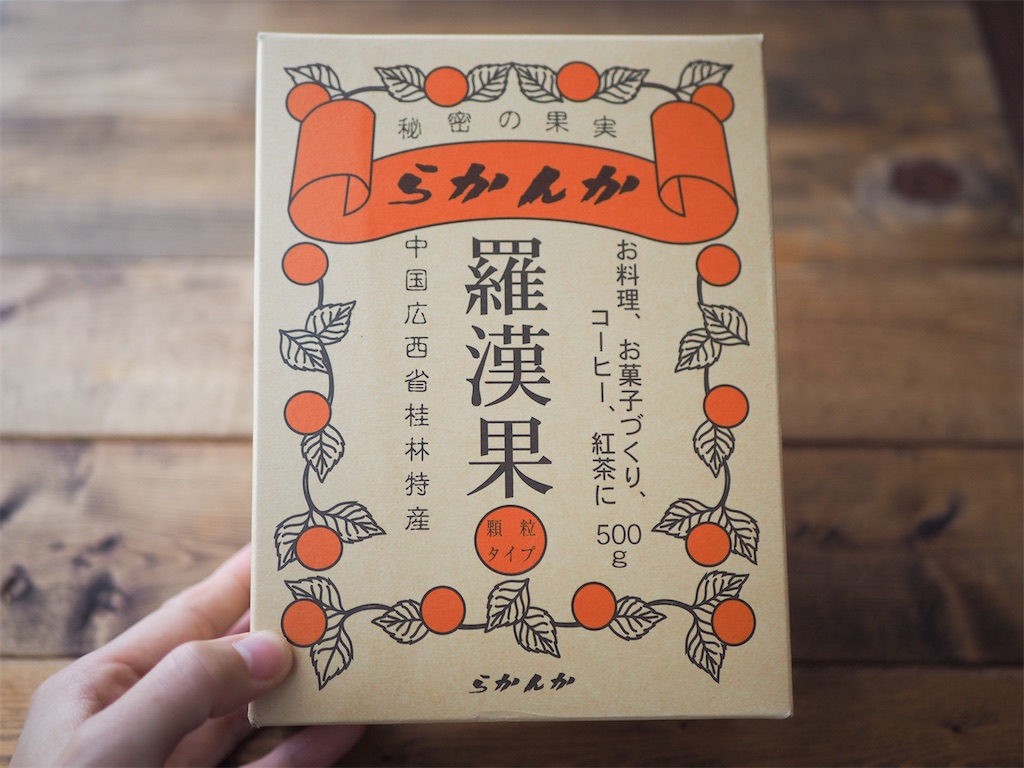 秘密の果実
らかんか
お料理、お菓子づくり、
コーヒー、紅茶に
500
g
羅漢果
顆粒
タイプ
中国広西省桂林特産
らかんか